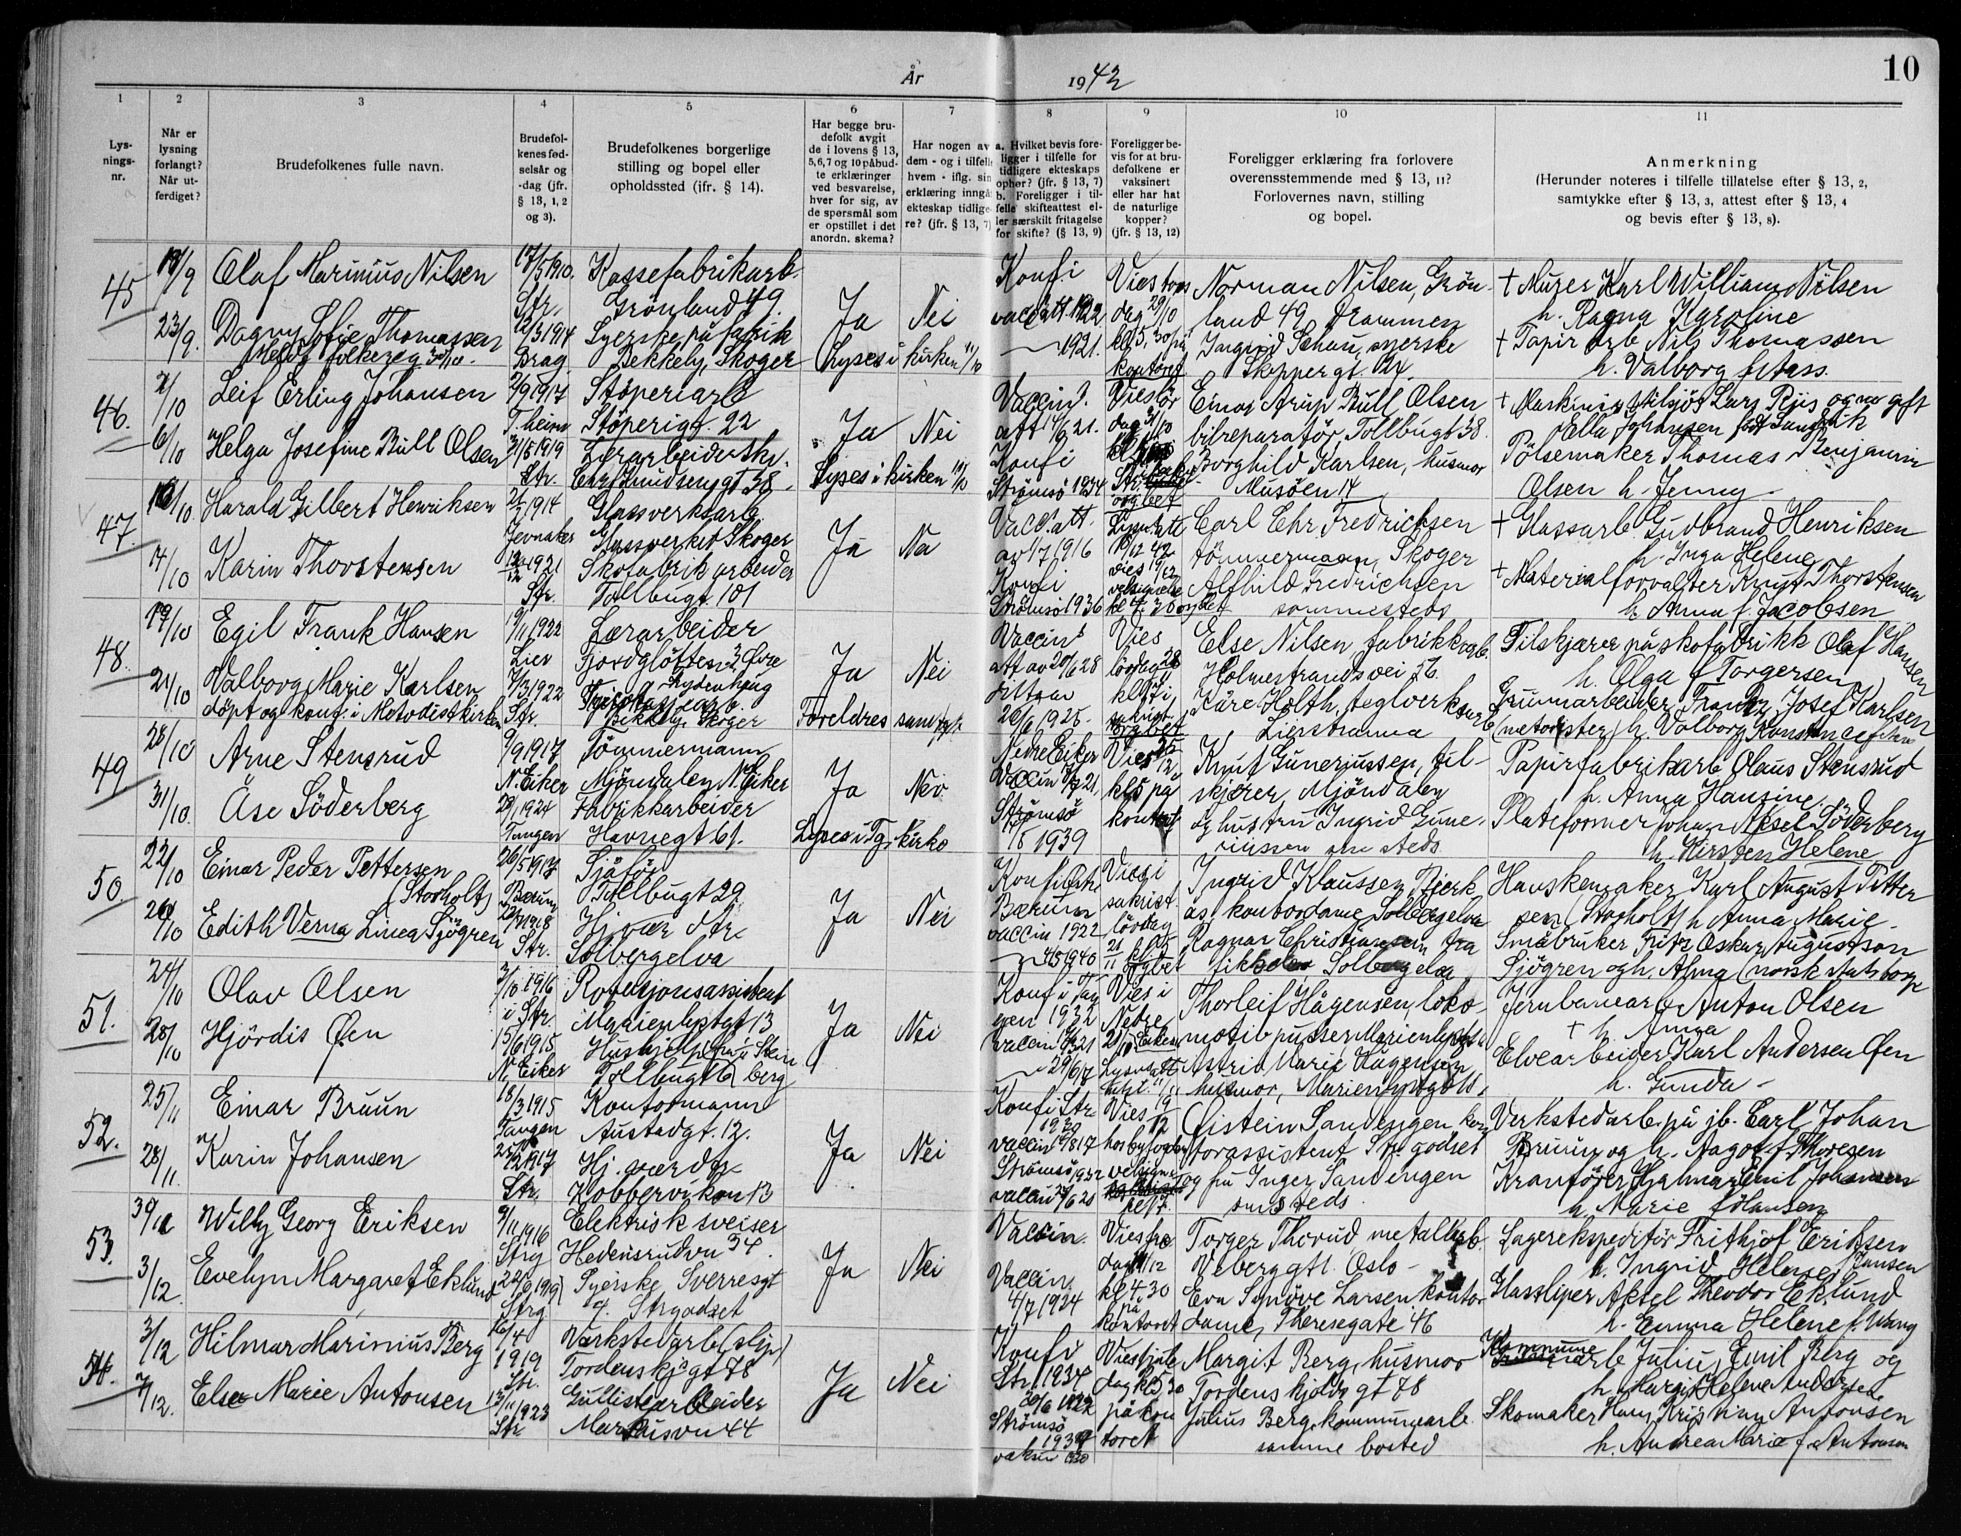 10
År 1942
1 2 3 4 5 6 7 8 9 10 11
Lys-
nings-
nr.
Når er
lysning
forlangt?
Når ut-
ferdiget?
Brudefolkenes fulle navn.
Brudefol-
kenes fød-
selsår og
-dag (jfr.
§ 13, 1, 2
og 3).
Brudefolkenes borgerlige
stilling og bopel eller
opholdssted (ifr. § 14).
Har begge bru-
defolk avgit
de i lovens § 13,
5, 6, 7 og 10 påbud-
te erklæringer
ved besvarelse,
hver for sig, av
de spørsmål som
er opstillet i det
anordn. skema?
Har nogen av
dem - og i tilfelle
hvem - iflg. sin
erklæring inngått
ekteskap tidlige-
re? (jfr. § 13, 7)
a. Hvilket bevis fore-
ligger i tilfelle for
tidligere ekteskaps
ophør? (jfr. § 13, 7)
b. Foreligger i til-
felle skifteattest el-
ler særskilt fritagelse
for skifte? (§ 13, 9)
Foreligger be-
vis for at bru-
defolkene er
vaksinert
eller har hat
de naturlige
kopper?
(jfr. § 13, 12)
Foreligger erklæring fra forlovere
overensstemmende med § 13, 11?
Forlovernes navn, stilling
og bopel.
Anmerkning
(Herunder noteres i tilfelle tillatelse efter § 13, 2,
samtykke efter § 13, 3, attest efter § 13, 4
og bevis efter § 13, 8).
45
18/9
Olaf Marinius Nilsen
Str.
Kassefabrikarb.
Grønland 49.
23/9.
Dagny Sofie Thomassen
12/3 1914
Brag.
Syerske på fabrik
Bekkely, Skoger
Ja
Nei
Lyses i kirken 11/10
Konfi
vacc att. 1922
1921.
Vies tors
dag 29/10
kl 5,30 på
kontoret
Norman Nilsen, Grøn-
land 49 Drammen
Ingrid Schau, syerske
Skippergt.
+ Murer Karl William Nilsen
h. Ragna Karoline
+ Papir arb Nils Thomassen
h. Valborg f Aass.
46.
2/10
Leif Erling Johansen
2/9 1917
T.heim
Støperiarb
Støperigt. 22
6/10
Helga Josefine Bull Olsen
Str.
Lærarbeiderske.
Chr. Knudsengt 38.
Ja
Nei
Lyses i kirken 11/10
Vaccin.
Konfi
Strømsø 1934
Vies lør
dag 31/10
Einar Arup Bull Olsen
bilreparatør, Tollbugt 38.
Borghild Karlsen, husmor
Musøen 14
Pølsemaker Thomas Benjamin
Olsen h. Jenny
47
10/10
Harald Gilbert Henriksen
2/7 1914
Jevnaker
Glassverksarb
Glassverket Skoger
14/10
Karin Thorstensen
1921
Str.
Skofabrik arbeider
Tollbugt. 101
Ja
Na
Vacc. att.
av 17 1916
Konfi
Strømsø 1936
Carl Chr Fredrichsen
tømmermann, Skoger
Alfhild Fredrichsen
sammesteds
+ Glassarb Gudbrand Henriksen
h. Inga Helene
+ Materialforvalter Knut Thorstensen
h. Anna f. Jacobsen
48.
19/10
Egil Frank Hansen
9/11 1922
Lier
Lærarbeider
21/10
Valborg Marie Karlsen
døpt og konf. i Metodistkirken
7/3 1922
Str.
Bekkely, Skoger
Ja
Nei
Foreldres samtykke
Vaccin
att av 20/6 28
20/6 1925
Vies
lørdag 28
Else Nilsen fabrikkarb.
Holmestrandsvei 56
Kåre Holth, teglverksarb
Lierstranna
Tilskjærer på skofabrikk Olaf Hansen
h. Olga f Torgersen
Grunnarbeider Frantz Josef Karlsen
(metodister) h Valborg Konstanse
49
28/10
Arne Stensrud
9/9 1917
N. Eiker
Tømmermann
Mjøndalen, N. Eiker
31/10
Åse Söderberg
29/1 1924
Tangen
Fabrikkarbeider
Havnegt 61.
Ja
Nei
Lyses i Tg. kirke
Nedre Eiker
Strømsø
1939
Vies
kl 5 på
kontoret
Knut Gunerjussen, til-
skjærer Mjøndalen
og hustru Ingrid Gune-
riussen sm steds
Papirfabrikarb. Olaus Stensrud
h. Anna Hansine.
Plateformer Johan Aksel Söderberg
h. Kirsten Helene
50.
22/10
Einar Peder Pettersen
(Storholt)
26/5 1917
Bærum
Sjåfør
Tollbugt 29
26/10
Edith Verna Linea Sjögren
Str.
Hj vær dtr
Solbergelva
Ja
Nei
Bærum
vaccin 1922
4/5 1940
Vies i
sakrist.
lørdag
21/11
Ingrid Klaussen Bjerk
ås, kontordame Solbergelva
Ragnar Christiansen tra
fikkelev Solbergelva
Hanskemaker Karl August Petter
sen (Storholt) h Anna Marie
Småbruker Fritz Oskar Augustson
Sjögren og h. Alma (norsk statsborg
51.
24/10
Olav Olsen
3/10 1916
i Str.
Rotasjonsassistent
Marienlystgt 13
28/10
Hjørdis Øen
15/6 1915
N. Eiker
Tollbugt 6
Ja
Nei
Konf i Tan
gen 1932
Vies i
Nedre
Eiker
Thorleif Hågensen, loko-
motivpusser Marienlystgt
Astrid Marie Hågensen
husmor, Marienlystgt
Jernbanearb Anton Olsen
+ h. Anna
Elvearbeider Karl Andersen Øen
h. Gunda
52.
25/11
Einar Bruun
18/3 1915
Tangen
Kontormann
Austadgt. 12.
28/11
Karin Johansen
Str.
Hj. værdtr
Kobbervikvn 13
Ja
Nei
Konf i Str
1930
Strømsø 1932
Vies 19/12
Øistein Sandengen kon
torassistent Str godset
og fru Inger Sandengen
sm steds.
Verkstedarb. på jb. Carl Johan
Bruun og h. Aagot f. Thoresen
Kranfører Hjalmar Emil Johansen
h. Marie f Hansen
53.
30/11
Willy Georg Eriksen
9/11 1916
Strg
Elektrisk sveiser
Hedensrudvn 34.
3/12
Evelyn Margaret Eklund
Strg
Syerske Sverresgt
9. Strgodset
Ja
Nei
Vaccin.
Vaccin
4/7 1924
kl 4.30
på
kontoret
Torger Thorud metallarb.
Webergg 1. Oslo
Eva Synøve Larsen kontor
dame, Theresegate 46
Lagerekspeditør Frithjof Eriksen
h. Ingrid Helene f Jansen
Glassliper Aksel Theodor Eklund
h. Emma Helene f. Wang
54.
3/12
Hilmar Marinius Berg
16/4
1919
Str.
Verkstedarb (slip)
Tordenskj gt 78
7/12.
Else Marie Antonsen
13/11 1923
Str
Gullistearbeider
Marsusvn 44
Ja
Nei
Konfi
Str 1934
Strømsø
Margit Berg, husmor
Tordenskjolds gt 78
Julius Berg, kommunearb.
samme bosted
Kommune
arb Julius Emil Berg og
h. Margit Helene Andersen
Skomaker Hans Kristian Antonsen
h. Andrea Marie f. Antonsen